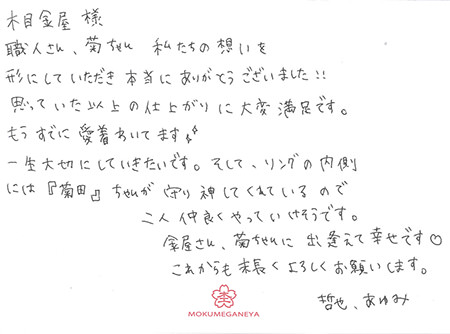 木目金屋 様
職人さん、菊ちゃん 私たちの想いを
形にしていただき本当にありがとうございました!!
思っていた以上の仕上がりに大変満足です。
もうすでに愛着わいてます
一生大切にしていきたいです。そして、リングの内側
には『菊田』ちゃんが守り神してくれているので
二人仲良くやっていけそうです。
金屋さん、菊ちゃんに出逢えて幸せです♡
これからも末長くよろしくお願いします。
哲也、あゆみ
MOKUMEGANEYA